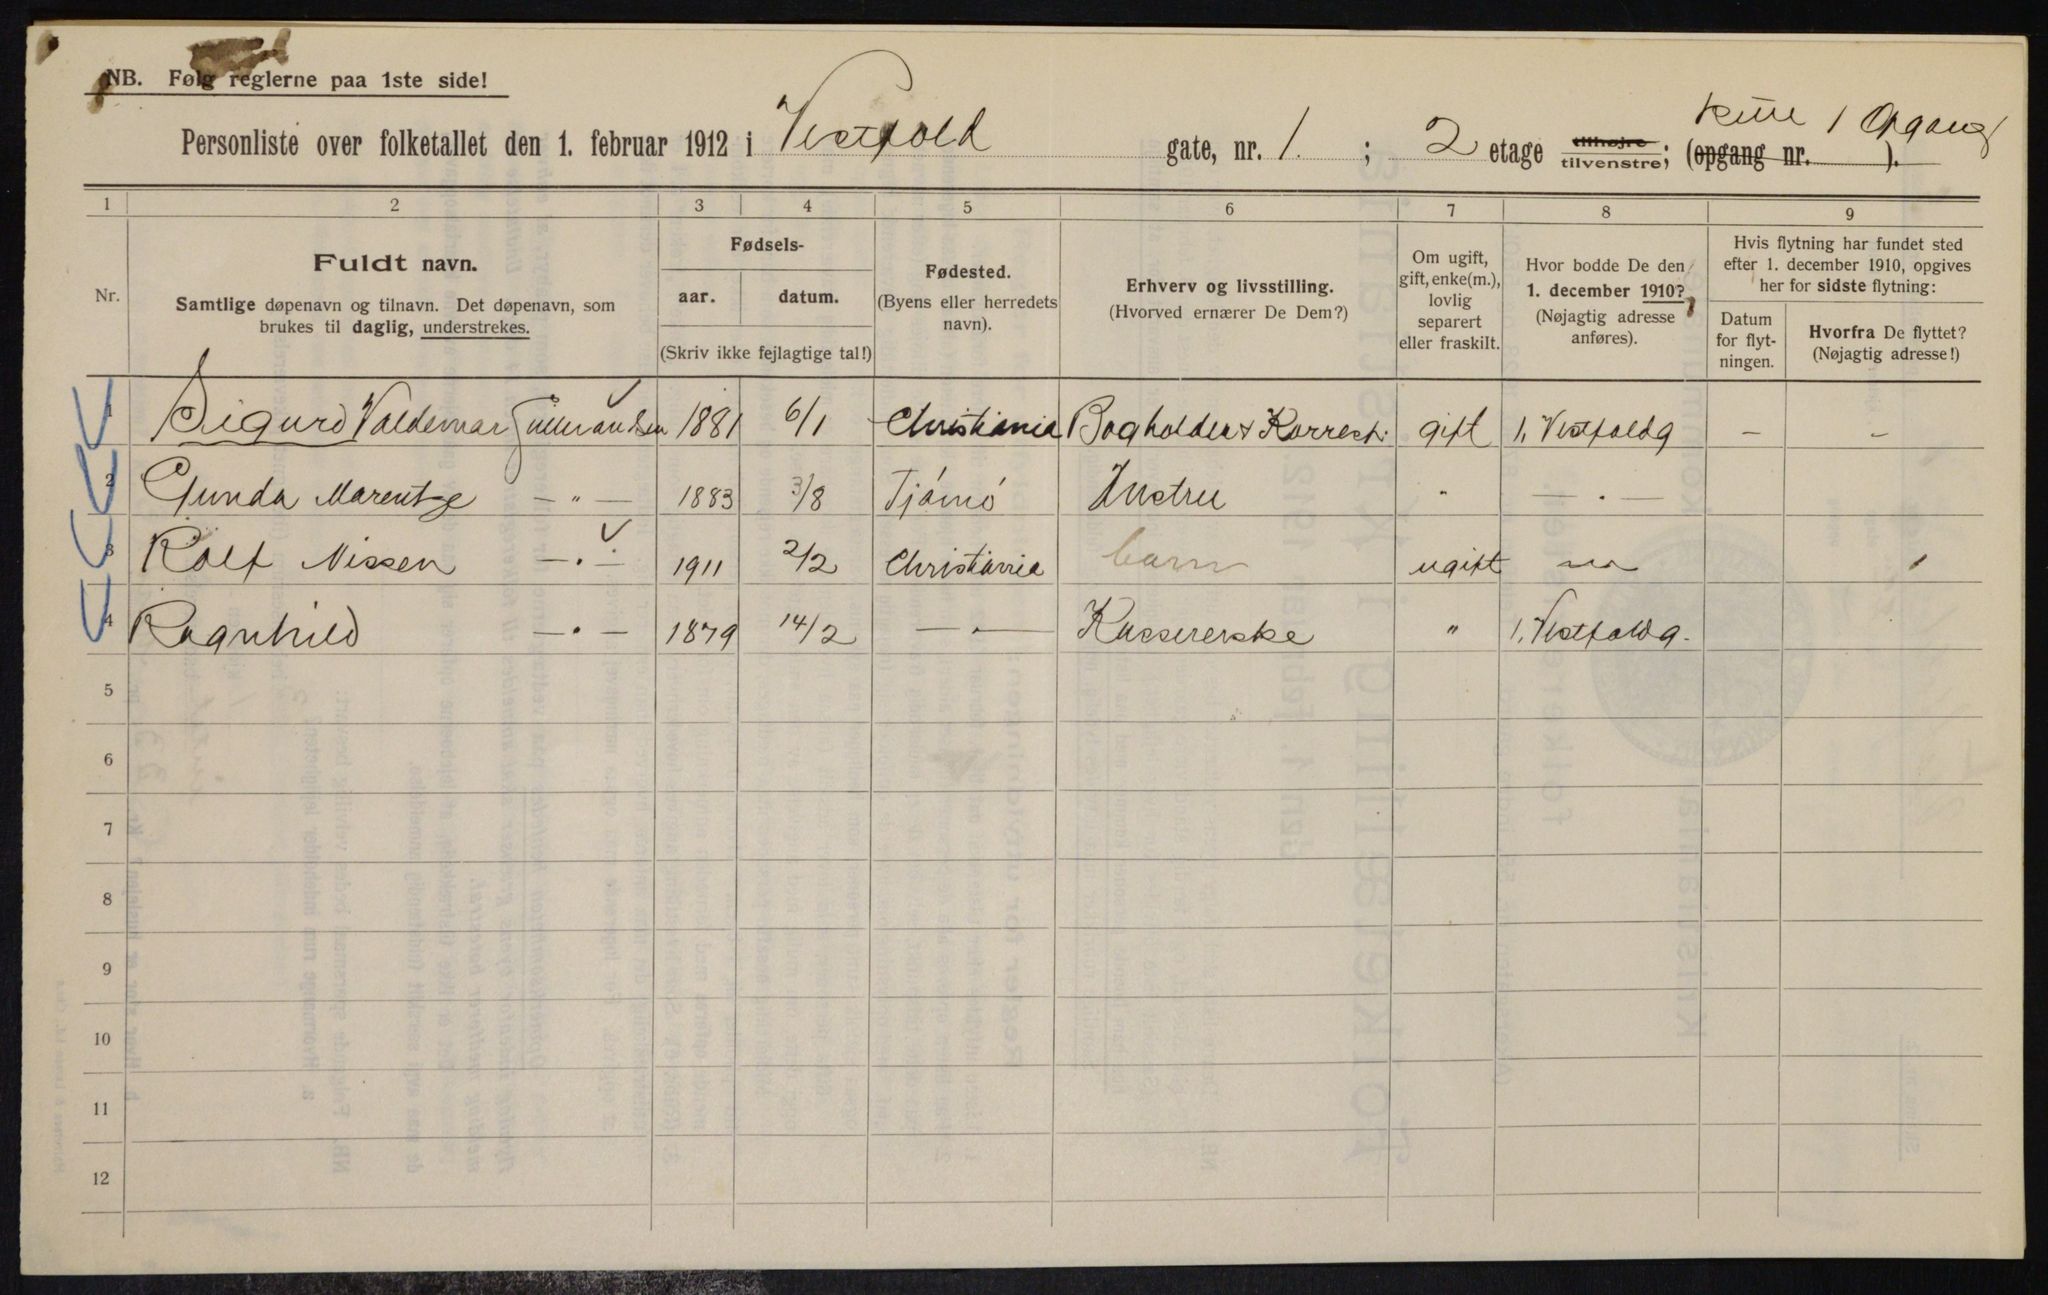 NB. Følg reglerne paa 1ste side!
Personliste over folketallet den 1. februar 1912 i Vestfold gate, nr. 1. ; 2 etage tilhøjre tilvenstre; (opgang nr. ). kun 1 Opgang
1 2 3 4 5 6 7 8 9
Nr.
Fuldt navn.
Samtlige døpenavn og tilnavn. Det døpenavn, som
brukes til daglig, understrekes.
Fødsels-
aar. datum.
(Skriv ikke fejlagtige tal!)
Fødested.
(Byens eller herredets
navn).
Erhverv og livsstilling.
(Hvorved ernærer De Dem?)
Om ugift,
gift, enke(m.),
lovlig
separert
eller fraskilt.
Hvor bodde De den
1. december 1910?
(Nøjagtig adresse
anføres).
Hvis flytning har fundet sted
efter 1. december 1910, opgives
her for sidste flytning:
Datum
for flyt-
ningen.
Hvorfra De flyttet?
(Nøjagtig adresse!)
1 Sigurd Valdemar 1881 6/1 Christiania Bogholder & Korresp. gift 1, Vestfoldg - -
2 Gunda Marentze — „ — 1883 3/8 Tjömö Hustru " — „ —
3 Rolf Nissen — „ — 1911 2/2 Christiania barn ugift
4 Ragnhild — „ — 1879 14/2 — „ — Kassererske " 1, Vestfoldg.
5
6
7
8
9
10
11
12